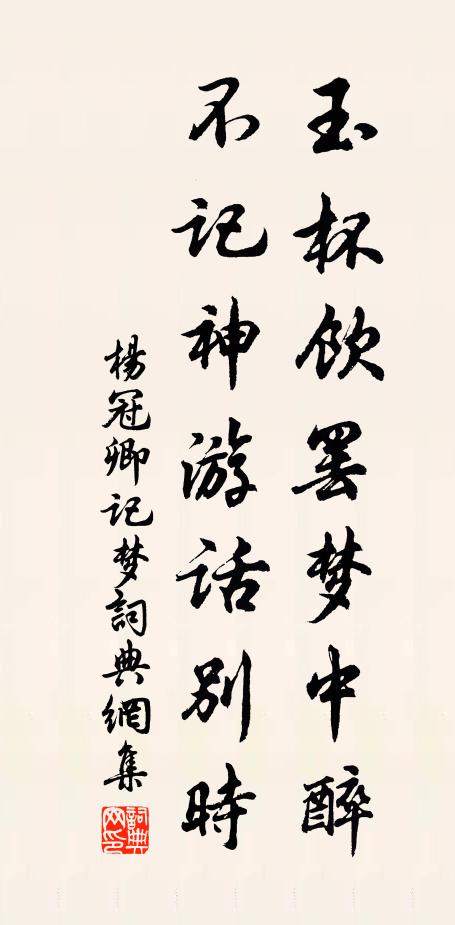 玉杯飲罢梦中醉
不记神游话别時
楊冠卿记梦詞典網集
詞典網印